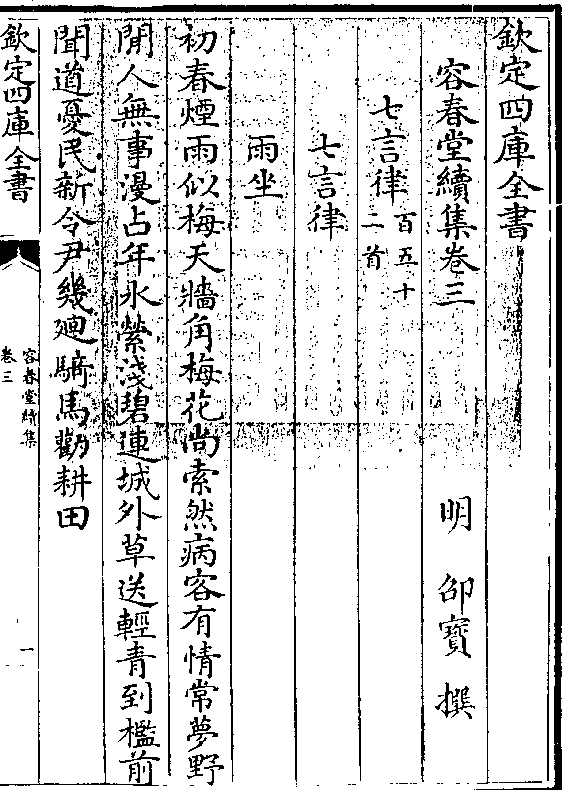 欽定四庫全書
容春堂續集卷三
明 邵寳 撰
七言律百五十二首
七言律
雨坐
初春煙雨似梅天牆角梅花尚索然病容有情常夢野
閒人無事漫占年氷縈淺碧連城外草送輕青到檻前
聞道憂民新令尹幾廻騎馬勸耕田
欽定四庫全書
容春堂續集
卷三
一